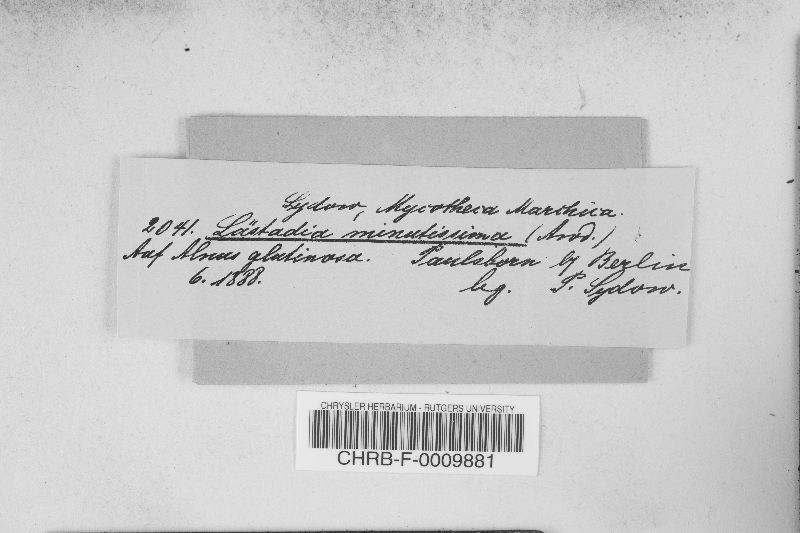 Sydow, Mycotheca Marchica.
2041. Lästadia minutissima (Awd.)
Auf Alnus glutinosa. Paulsborn bg Berlin
6. 1888. leg. P. Sydow.
CHRYSLER HERBARIUM - RUTGERS UNIVERSITY
CHRB-F-0009881